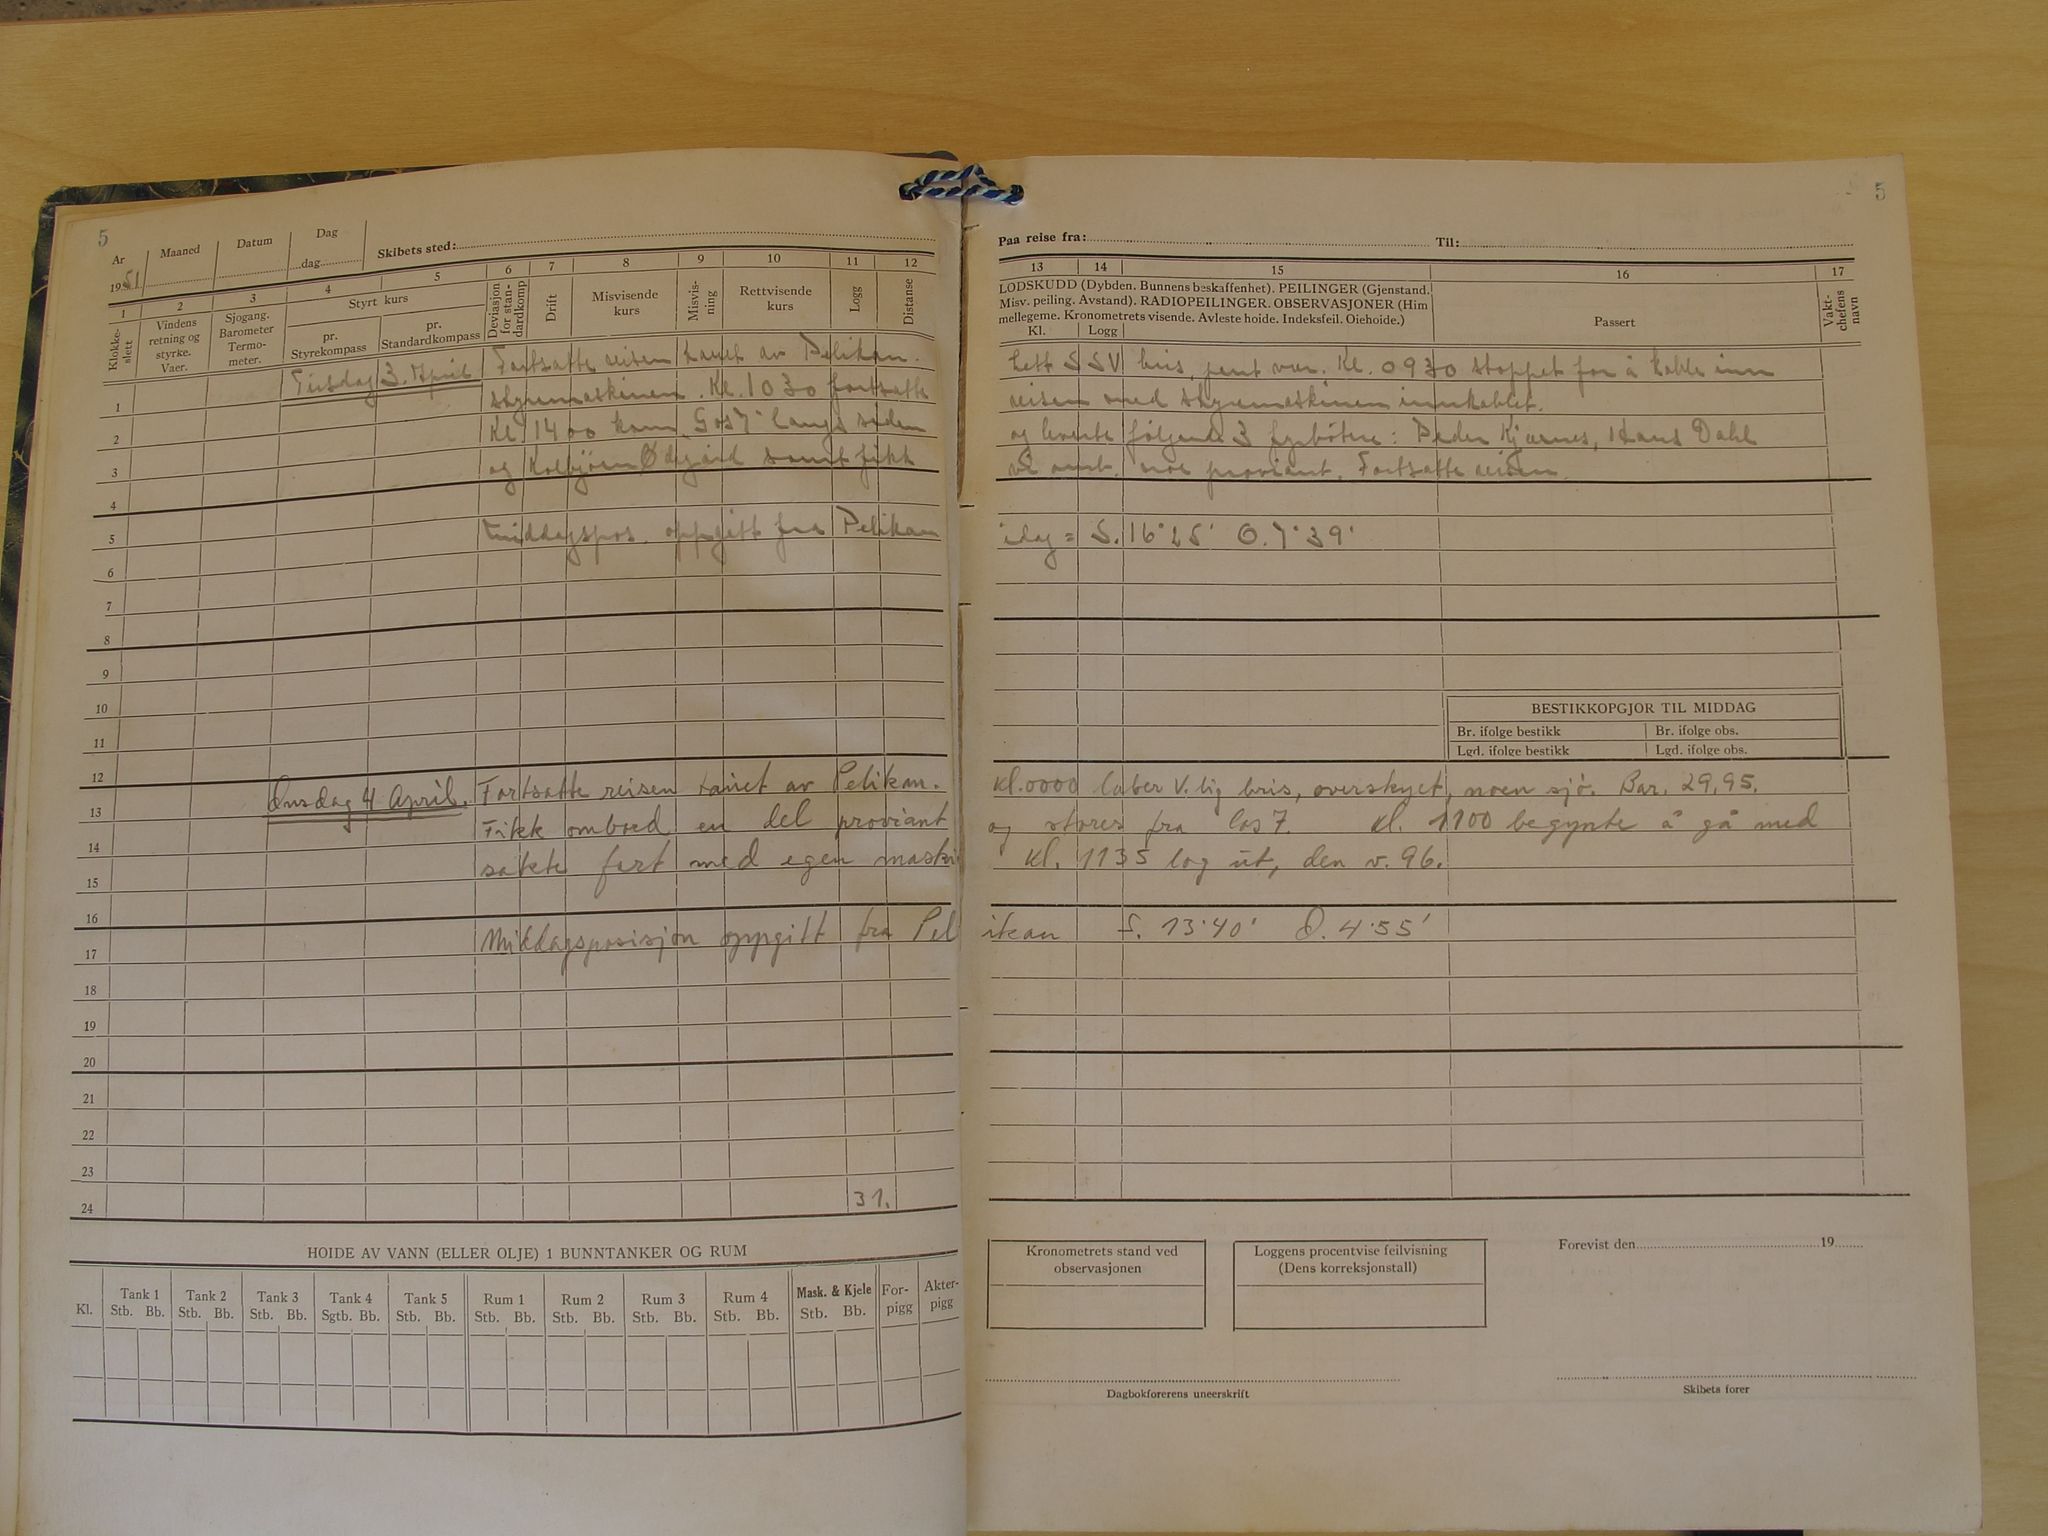 5
Ar Maaned Datum Dag Skibets sted:
1951 dag
1 2 3 4 5 6 7 8 9 10 11 12
Klokke-slett
Vindens retning og styrke. Vaer.
Sjogang. Barometer Termo-meter.
Styrt kurs
pr. Styrekompass
pr. Standardkompass
Deviasjon for stan-dardkomp
Drift
Misvisende kurs
Misvis-ning
Rettvisende kurs
Logg
Distanse
Tirsdag 3. April Fortsatte reisen tauet av Pelikan.
styremaskinen. Kl. 1030 fortsatte
Kl 1400 kom Gos 7 langs siden
og Kolbjörn Ødegård samt fikk
Middagspos. oppgitt fra Pelikan
Onsdag 4 April. Fortsatte reisen tauet av Pelikan.
Fikk ombord en del proviant
sakte fart med egen maskin
Middagsposisjon oppgitt fra Pel
1
2
3
4
5
6
7
8
9
10
11
12
13
14
15
16
17
18
19
20
21
22
23
24 31.
HOIDE AV VANN (ELLER OLJE) 1 BUNNTANKER OG RUM
Kl. Tank 1 Tank 2 Tank 3 Tank 4 Tank 5 Rum 1 Rum 2 Rum 3 Rum 4 Mask. & Kjele For-pigg Akter-pigg
Stb. Bb. Stb. Bb. Stb. Bb. Sgtb. Bb. Stb. Bb. Stb. Bb. Stb. Bb. Stb. Bb. Stb. Bb. Stb. Bb.
5
Paa reise fra: Til:
13 14 15 16 17
LODSKUDD (Dybden. Bunnens beskaffenhet). PEILINGER (Gjenstand.
Misv. peiling. Avstand). RADIOPEILINGER. OBSERVASJONER (Him
mellegeme. Kronometrets visende. Avleste hoide. Indeksfeil. Oiehoide.)
Kl. Logg
Passert
Vakt-chefens navn
Lett SSV bris, pent vær. Kl. 0930 stoppet for å koble inn
reisen med styremaskinen innkoblet.
og leverte følgende 3 fyrbötere: Peder Kjærnes, Hans Dahl
noe proviant. Fortsatte reisen.
idag = S. 16°25' O. 7°39'
BESTIKKOPGJOR TIL MIDDAG
Br. ifolge bestikk Br. ifolge obs.
Lgd. ifolge bestikk Lgd. ifolge obs.
Kl. 0000 laber V. lig bris, overskyet, noen sjö. Bar. 29,95.
og stores fra Gos 7. Kl. 1100 begynte å gå med
Kl. 1135 log ut, den v. 96.
ikan S. 13°40' O. 4°55'
Kronometrets stand ved observasjonen
Loggens procentvise feilvisning (Dens korreksjonstall)
Forevist den 19
Dagbokforerens uneerskrift
Skibets forer